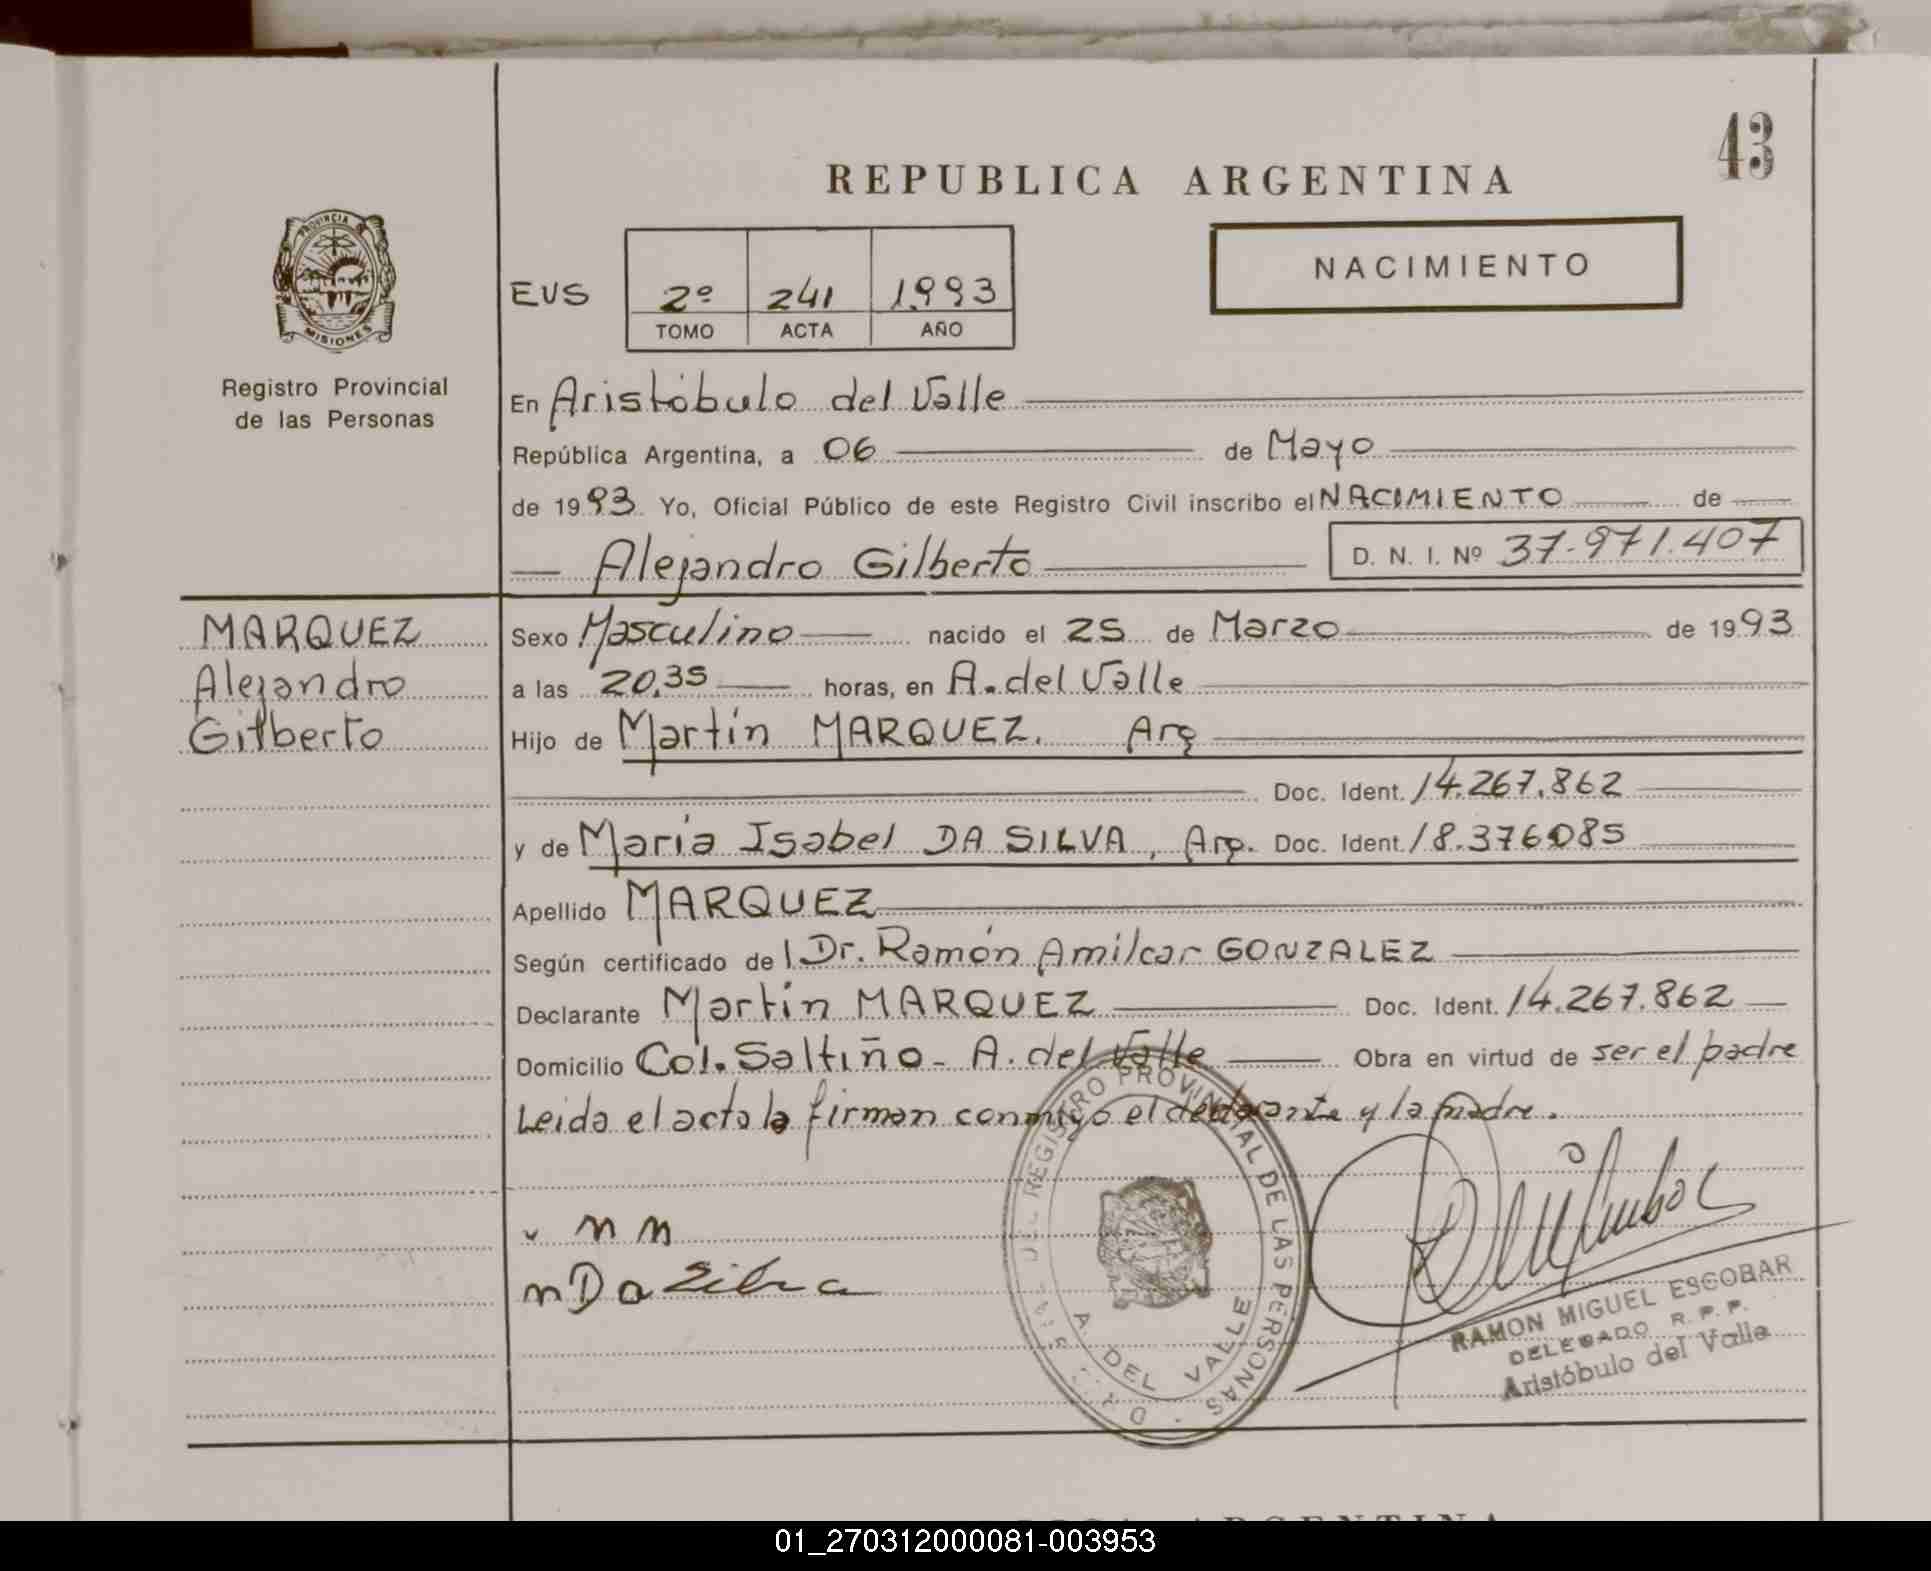 43
REPUBLICA ARGENTINA
NACIMIENTO
PROVINCIA
MISIONES
Registro Provincial
de las Personas
EVS 2º 241 1993
TOMO ACTA AÑO
En Aristóbulo del Valle
República Argentina, a 06 de Mayo
de 1993 Yo, Oficial Público de este Registro Civil inscribo el NACIMIENTO de
Alejandro Gilberto D. N. I. Nº 37.971.407
MARQUEZ
Alejandro
Gilberto
Sexo Masculino nacido el 25 de Marzo de 1993
a las 20,35 horas, en A. del Valle
Hijo de Martín MARQUEZ. Arg
Doc. Ident. 14.267.862
y de María Isabel DA SILVA, Arg. Doc. Ident. 18.376085
Apellido MARQUEZ
Según certificado del Dr. Ramón Amilcar GONZALEZ
Declarante Martín MARQUEZ Doc. Ident. 14.267.862
Domicilio Col. Saltiño - A. del Valle Obra en virtud de ser el padre
Leida el acta la firman conmigo el declarante y la madre.
m m
m Da Silva
REGISTRO PROVINCIAL DE LAS PERSONAS
A. DEL VALLE
RAMON MIGUEL ESCOBAR
DELEGADO R. P. P.
Aristóbulo del Valle
01_270312000081-003953